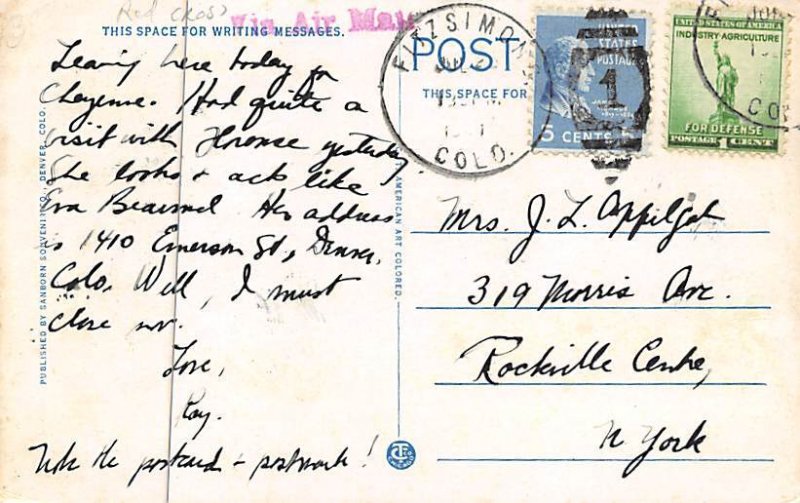 Red Cross
Via Air Mail
THIS SPACE FOR WRITING MESSAGES.
Leaving here today for
Cheyenne. Had quite a
visit with yesterday
She looks + acts like
Eva Her address
is 1410 Emerson St, Denver,
Colo. Well, I must
close now.
Love,
Ray.
Note the postcard + postmark!
PUBLISHED BY SANBORN SOUVENIR CO., DENVER, COLO.
AMERICAN ART COLORED.
POST
THIS SPACE FOR
FITZSIMONS
JUL
COLO.
1
UNITED
STATES
POSTAGE
5 CENTS 5
UNITED STATES OF AMERICA
INDUSTRY AGRICULTURE
FOR DEFENSE
POSTAGE 1 CENT
COLO
Mrs. J. L.
319 Morris Ave.
Rockville Centre,
N York